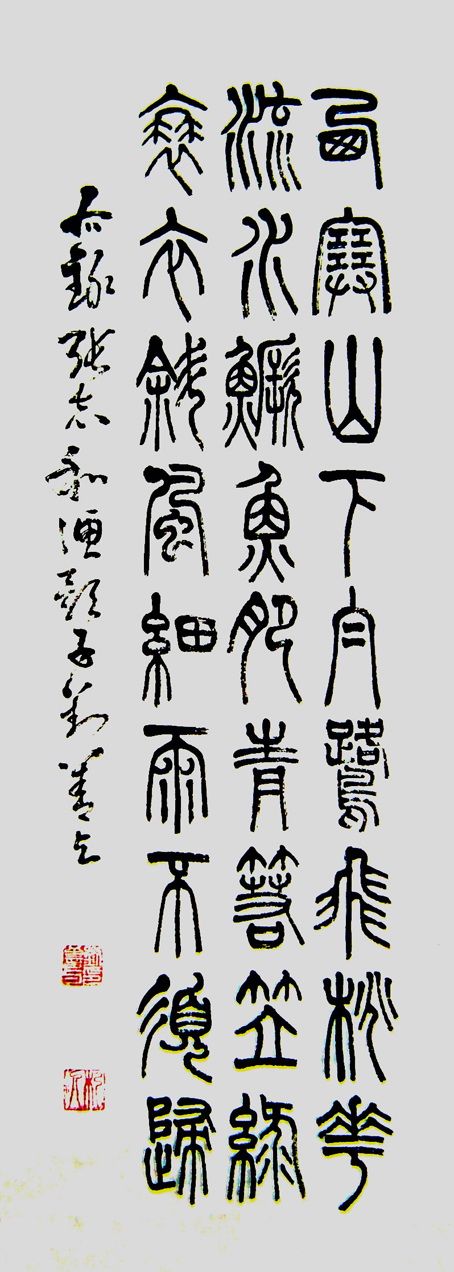 西塞山下白鷺飛桃華
流水鱖魚肥青箬笠綠
蓑衣斜風細雨不須歸
右錄張志和漁歌子劉